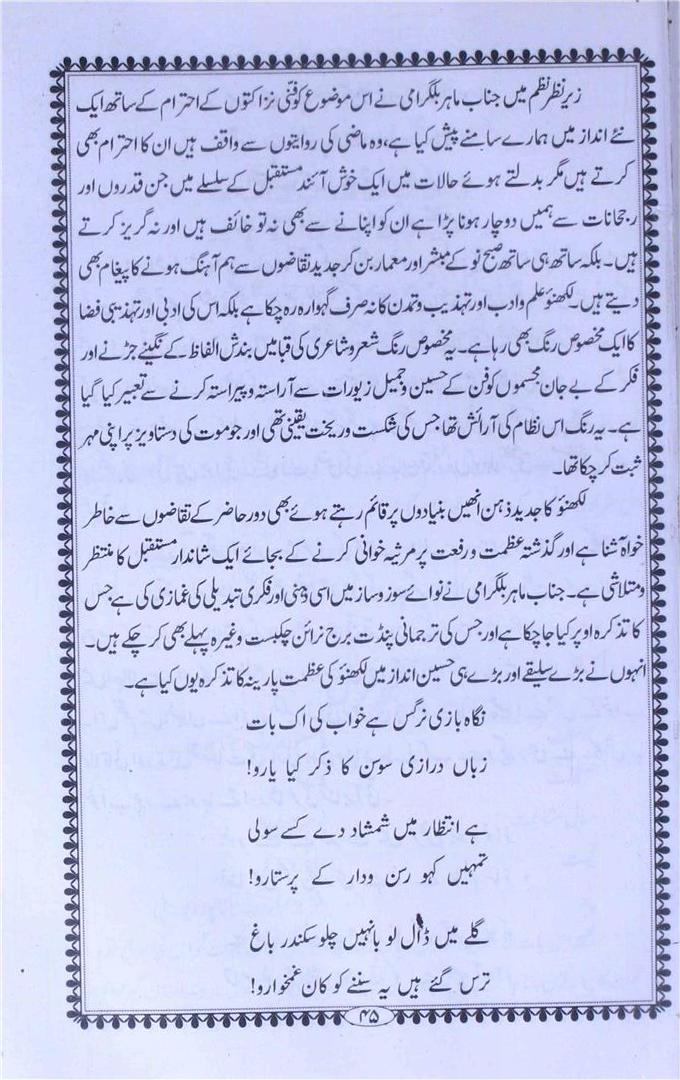 زیر نظر نظم میں جناب ماہر بلگرامی نے اس موضوع کو فنّی نزاکتوں کے احترام کے ساتھ ایک
نئے انداز میں ہمارے سامنے پیش کیا ہے، وہ ماضی کی روایتوں سے واقف ہیں ان کا احترام بھی
کرتے ہیں مگر بدلتے ہوئے حالات میں ایک خوش آئند مستقبل کے سلسلے میں جن قدروں اور
رجحانات سے ہمیں دوچار ہونا پڑا ہے ان کو اپنانے سے بھی نہ تو خائف ہیں اور نہ گریز کرتے
ہیں۔ بلکہ ساتھ ہی ساتھ صبح نو کے مبشر اور معمار بن کر جدید تقاضوں سے ہم آہنگ ہونے کا پیغام بھی
دیتے ہیں۔ لکھنؤ علم و ادب اور تہذیب و تمدن کا نہ صرف گہوارہ رہ چکا ہے بلکہ اس کی ادبی اور تہذیبی فضا
کا ایک مخصوص رنگ بھی رہا ہے۔ یہ مخصوص رنگ شعر و شاعری کی قبا میں بندش الفاظ کے نگینے جڑنے اور
فکر کے بے جان مجسموں کو فن کے حسین و جمیل زیورات سے آراستہ و پیراستہ کرنے سے تعبیر کیا گیا
ہے۔ یہ رنگ اس نظام کی آرائش تھا جس کی شکست و ریخت یقینی تھی اور جو موت کی دستاویز پر اپنی مہر
ثبت کر چکا تھا۔
لکھنؤ کا جدید ذہن انھیں بنیادوں پر قائم رہتے ہوئے بھی دور حاضر کے تقاضوں سے خاطر
خواہ آشنا ہے اور گذشتہ عظمت و رفعت پر مرثیہ خوانی کرنے کے بجائے ایک شاندار مستقبل کا منتظر
و متلاشی ہے۔ جناب ماہر بلگرامی نے نوائے سوز و ساز میں اسی ذہنی اور فکری تبدیلی کی غمازی کی ہے جس
کا تذکرہ اوپر کیا جا چکا ہے اور جس کی ترجمانی پنڈت برج نرائن چکبست وغیرہ پہلے بھی کر چکے ہیں۔
انہوں نے بڑے سلیقے اور بڑے ہی حسین انداز میں لکھنؤ کی عظمت پارینہ کا تذکرہ یوں کیا ہے۔
نگاہ بازی نرگس ہے خواب کی اک بات
زباں درازی سوسن کا ذکر کیا یارو!
ہے انتظار میں شمشاد دے کسے سولی
تمہیں کہو رسن ودار کے پرستارو!
گلے میں ڈال لو بانہیں چلو سکندر باغ
ترس گئے ہیں یہ سننے کو کان غمخوارو!
۴۵